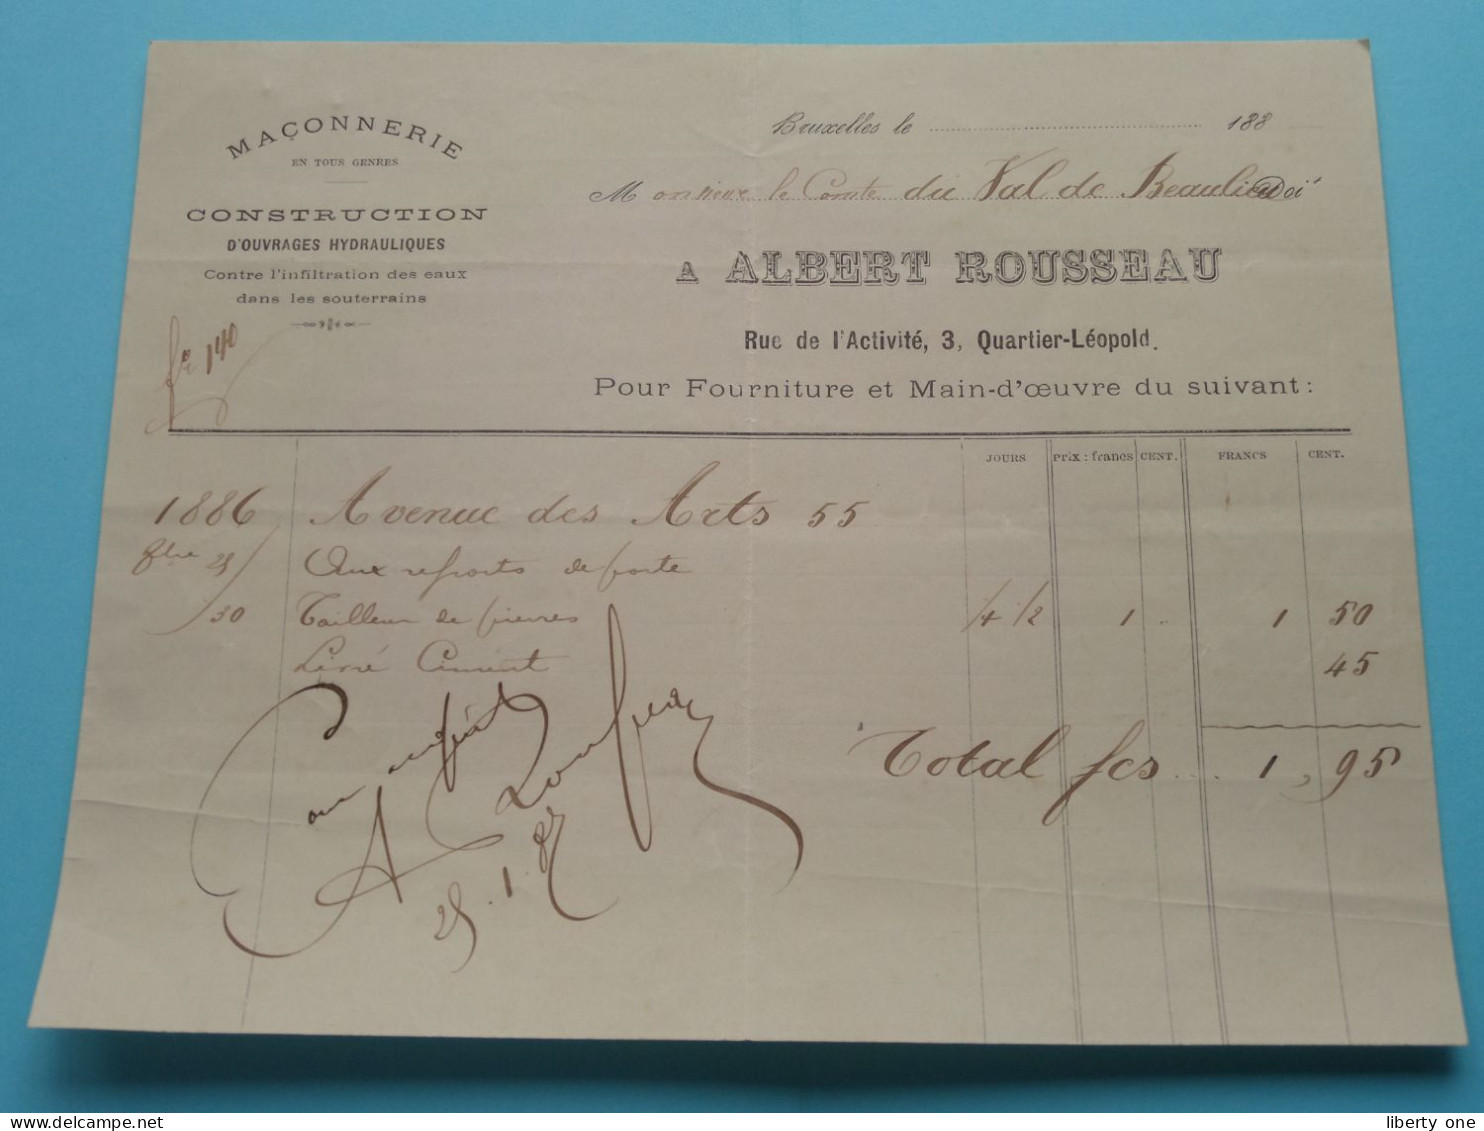 MAÇONNERIE
EN TOUS GENRES
CONSTRUCTION
D'OUVRAGES HYDRAULIQUES
Contre l'infiltration des eaux
dans les souterrains
fo 140
Bruxelles le 188
Monsieur le Comte du Val de Beaulieu Doit
A ALBERT ROUSSEAU
Rue de l'Activité, 3, Quartier-Léopold.
Pour Fourniture et Main-d'œuvre du suivant :
JOURS Prix : francs CENT. FRANCS CENT.
1886 Avenue des Arts 55
25 Aux reports de porte
30 Tailleur de pierres 1/4 1/2 1 1 50
Livré Ciment 45
Total fcs 1,95
Pour acquit
A Rousseau
25.1.87
liberty one